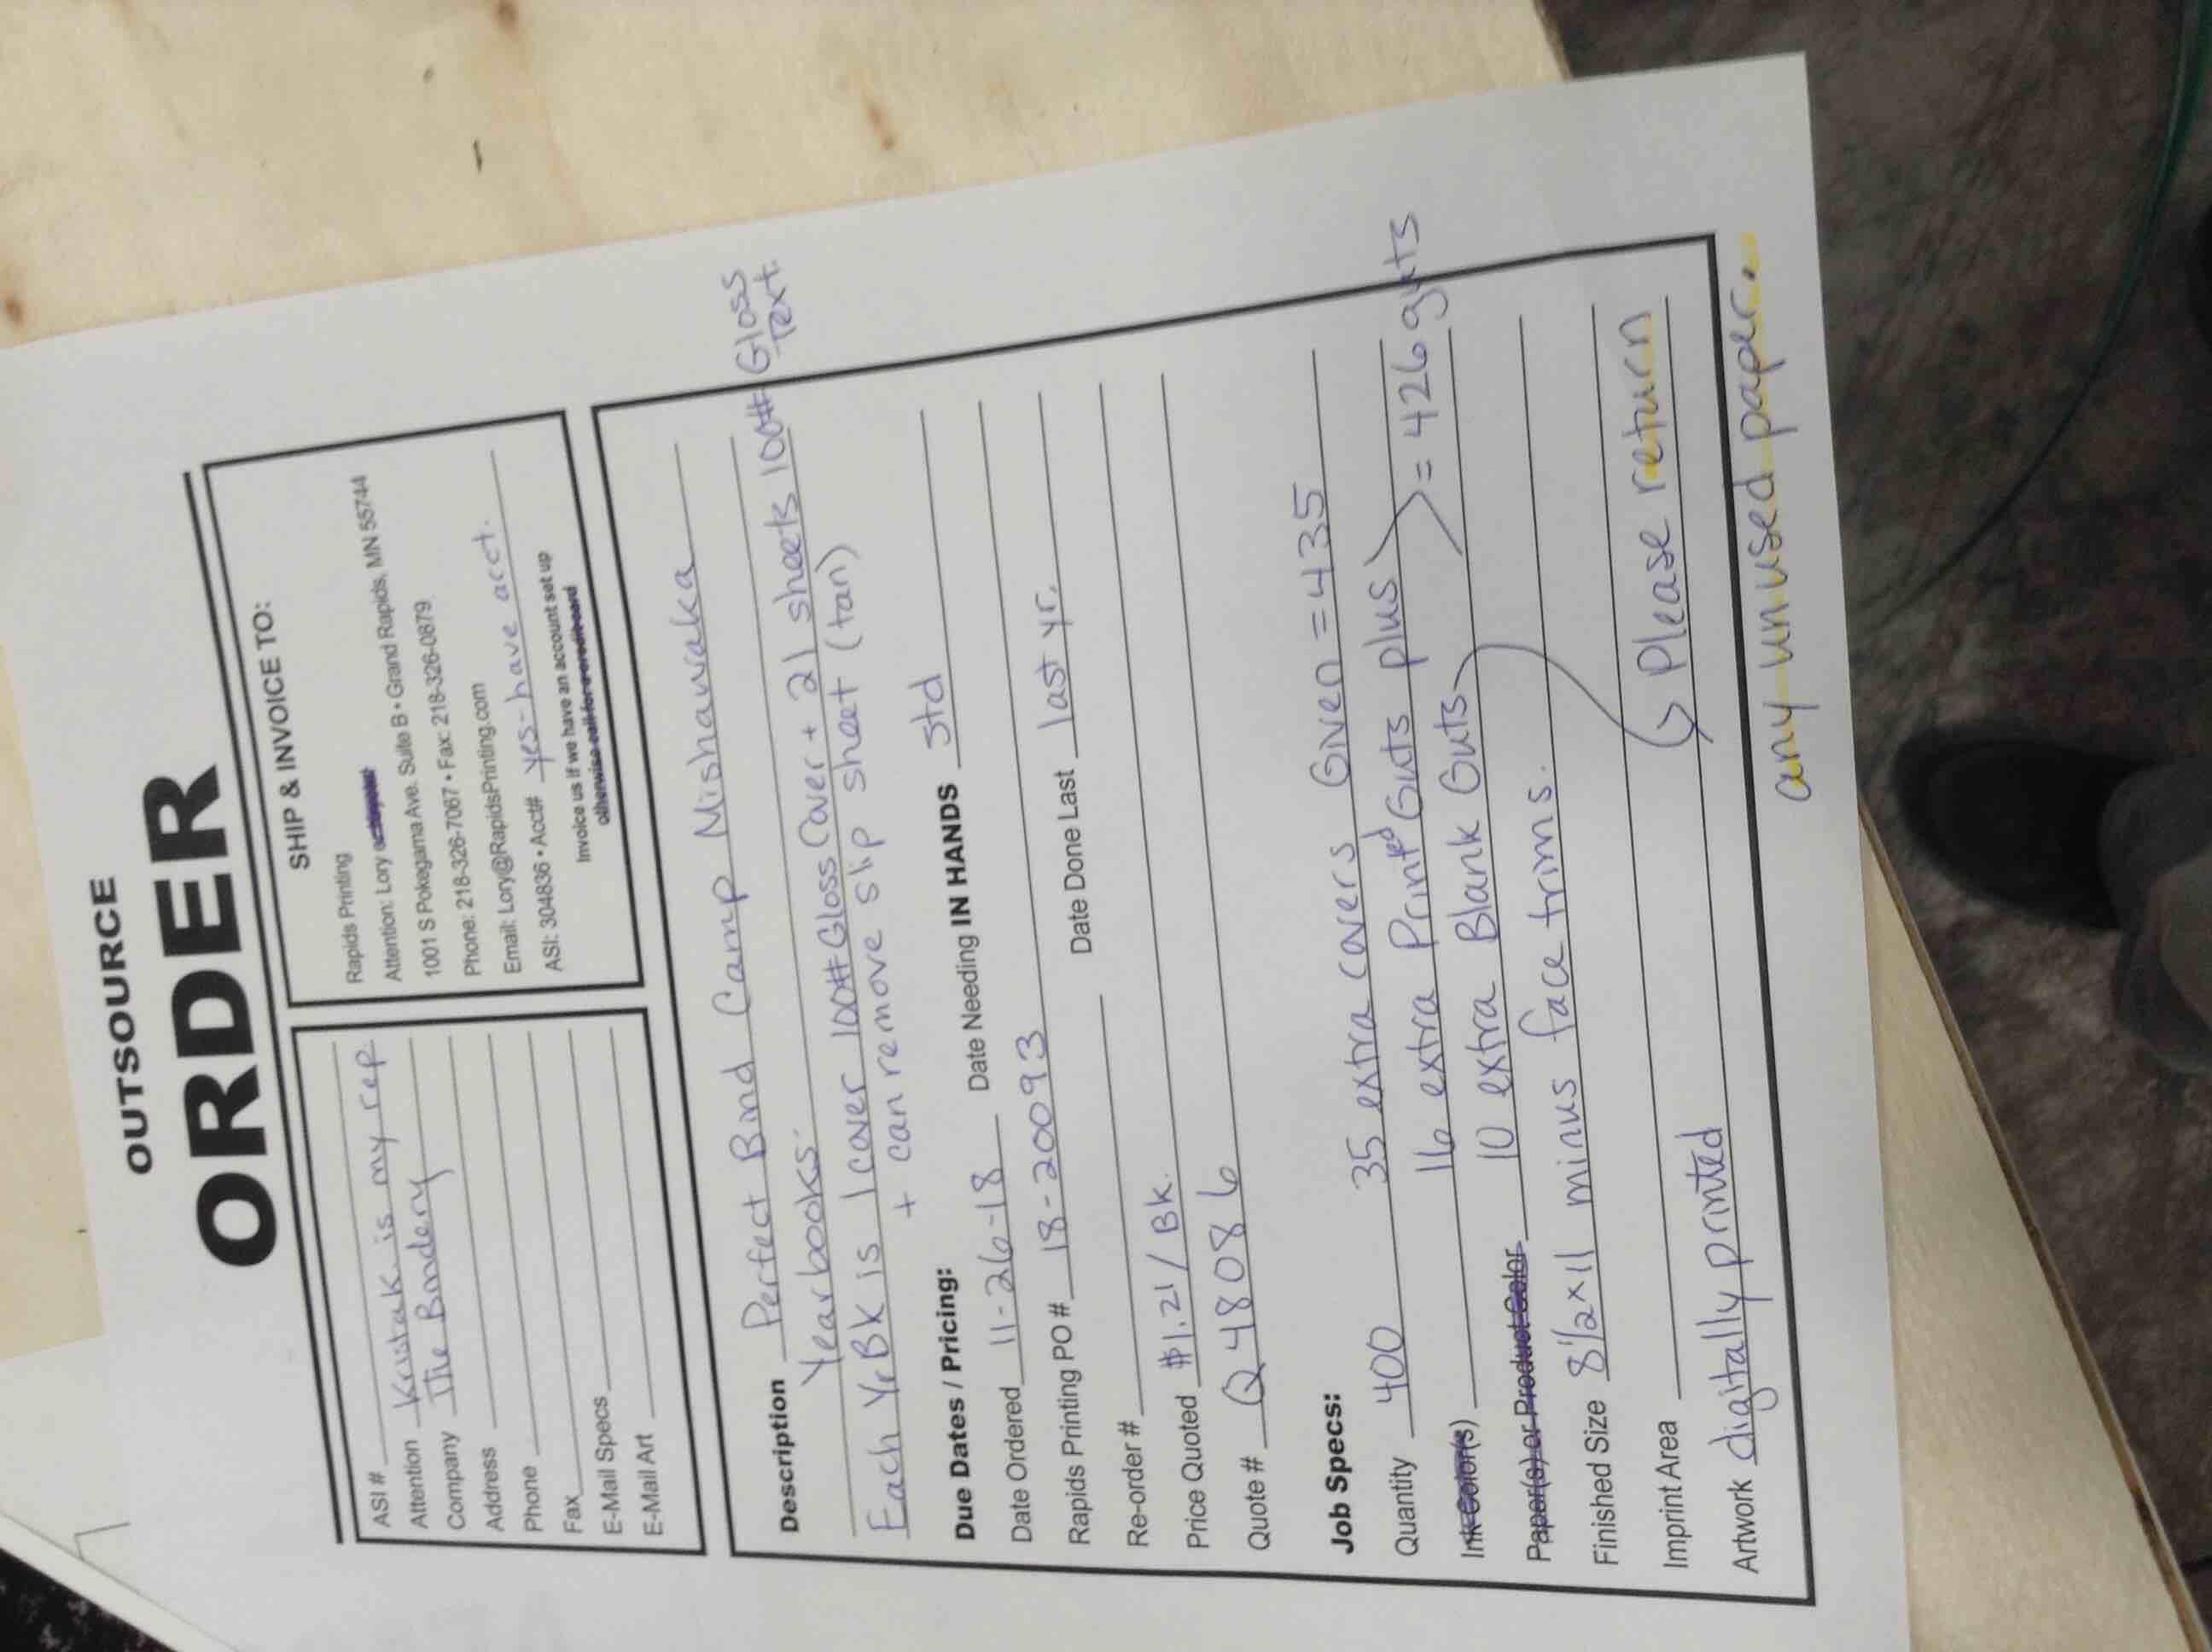 OUTSOURCE
ORDER
ASI #
Attention Kristak is my rep
Company The Bindery
Address
Phone
Fax
E-Mail Specs
E-Mail Art
SHIP & INVOICE TO:
Rapids Printing
Attention: Lory
1001 S Pokegama Ave. Suite B • Grand Rapids, MN 55744
Phone: 218-326-7067 • Fax: 218-326-0879
Email: Lory@RapidsPrinting.com
ASI: 304836 • Acct# yes-have acct.
Invoice us if we have an account set up
otherwise call for a credit card
Description Perfect Bind Camp Mishawaka
Yearbooks.
Each YrBK is 1 cover 100# Gloss Cover + 21 sheets 100# Gloss Text.
+ can remove slip sheet (tan)
Due Dates / Pricing:
Date Ordered 11-26-18 Date Needing IN HANDS std
Rapids Printing PO# 18-20093 Date Done Last last yr.
Re-order #
Price Quoted $1.21/Bk.
Quote # Q48086
Job Specs:
Quantity 400 35 extra covers Given = 435
Ink Color(s) 16 extra Printed Guts plus > = 426 guts
Paper(s) or Product Color 10 extra Blank Guts
Finished Size 8½x11 minus face trims.
Imprint Area Please return
Artwork digitally printed any unused paper.